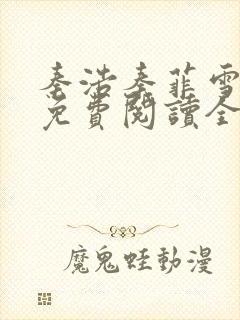 秦浩秦菲雪
免費閱讀全
魔鬼蛙動漫